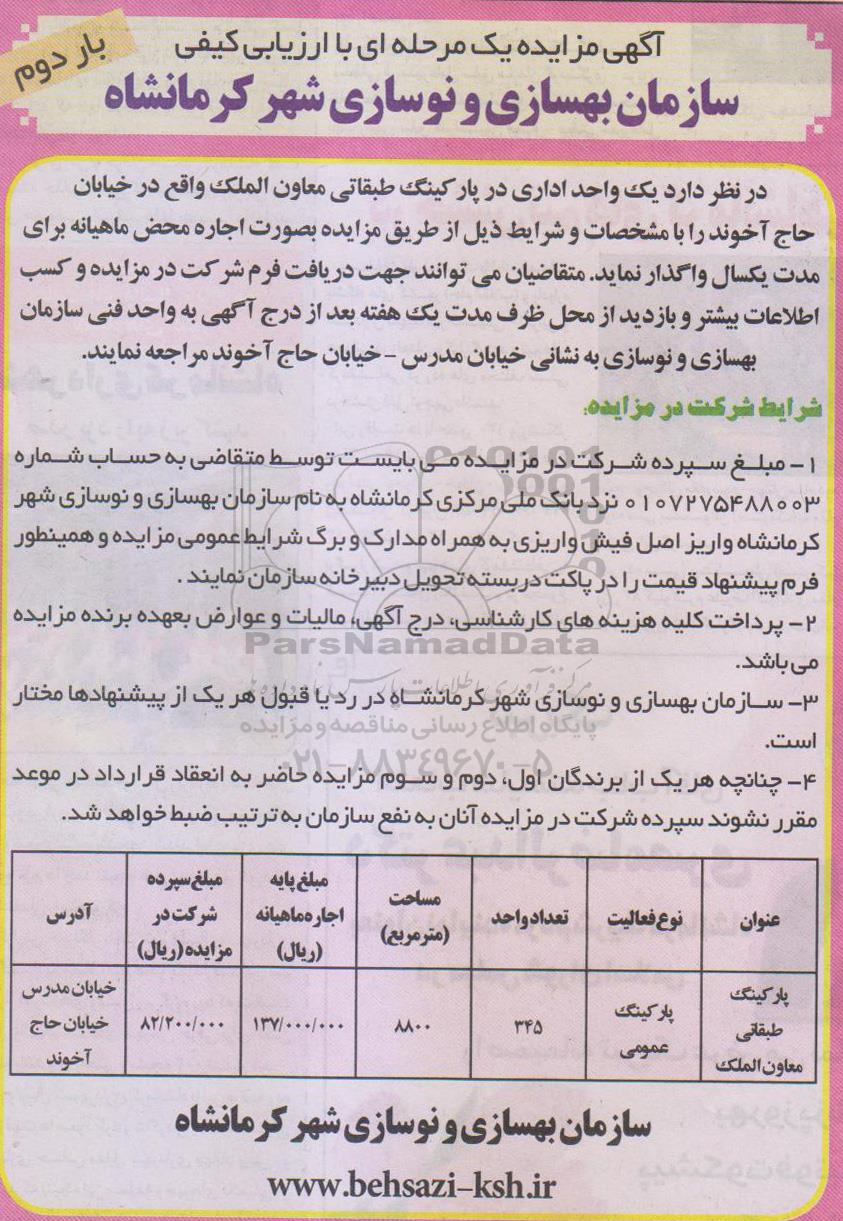 آگهی مزایده یک مرحله ای با ارزیابی کیفی
بار دوم
سازمان بهسازی و نوسازی شهر کرمانشاه
در نظر دارد یک واحد اداری در پارکینگ طبقاتی معاون الملک واقع در خیابان
حاج آخوند را با مشخصات و شرایط ذیل از طریق مزایده بصورت اجاره محض ماهیانه برای
مدت یکسال واگذار نماید. متقاضیان می توانند جهت دریافت فرم شرکت در مزایده و کسب
اطلاعات بیشتر و بازدید از محل ظرف مدت یک هفته بعد از درج آگهی به واحد فنی سازمان
بهسازی و نوسازی به نشانی خیابان مدرس - خیابان حاج آخوند مراجعه نمایند.
شرایط شرکت در مزایده:
۱- مبلغ سپرده شرکت در مزایده می بایست توسط متقاضی به حساب شماره
۰۱۰۷۲۷۵۴۸۸۰۰۳ نزد بانک ملی مرکزی کرمانشاه به نام سازمان بهسازی و نوسازی شهر
کرمانشاه واریز اصل فیش واریزی به همراه مدارک و برگ شرایط عمومی مزایده و همینطور
فرم پیشنهاد قیمت را در پاکت دربسته تحویل دبیرخانه سازمان نمایند .
۲- پرداخت کلیه هزینه های کارشناسی، درج آگهی، مالیات و عوارض بعهده برنده مزایده
می باشد.
ParsNamadData
۳- سازمان بهسازی و نوسازی شهر کرمانشاه در رد یا قبول هر یک از پیشنهادها مختار
است.
پایگاه اطلاع رسانی مناقصه و مزایده
۰۲۱-۸۸۳۴۹۶۷۰-۵
۴- چنانچه هر یک از برندگان اول، دوم و سوم مزایده حاضر به انعقاد قرارداد در موعد
مقرر نشوند سپرده شرکت در مزایده آنان به نفع سازمان به ترتیب ضبط خواهد شد.
عنوان | نوع فعالیت | تعداد واحد | مساحت (مترمربع) | مبلغ پایه اجاره ماهیانه (ریال) | مبلغ سپرده شرکت در مزایده (ریال) | آدرس
پارکینگ طبقاتی معاون الملک | پارکینگ عمومی | ۳۴۵ | ۸۸۰۰ | ۱۳۷/۰۰۰/۰۰۰ | ۸۲/۲۰۰/۰۰۰ | خیابان مدرس خیابان حاج آخوند
سازمان بهسازی و نوسازی شهر کرمانشاه
www.behsazi-ksh.ir